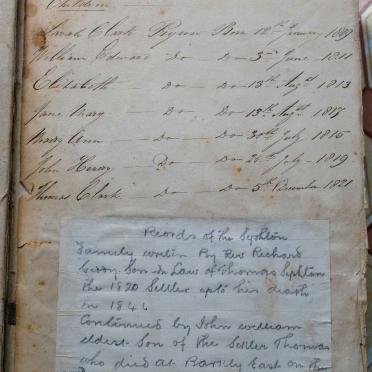 Children
Sarah Clark Born 12th
William Edward Do Do 3rd June 1811
Elizabeth Do Do 18th Augst 1813
Jane Mary Do Do 13th Augst 1817
Mary Ann Do Do 30th July 1815
John Do Do 26th July 1819
Thomas Clark Do Do 5th December 1821
Records of the Sephton
Family By Rev Richard
Son in Law of Thomas Sephton
the 1820 Settler upto his death
in
Continued by John William
eldest Son of the Settler Thomas
who died at Barkly East on the